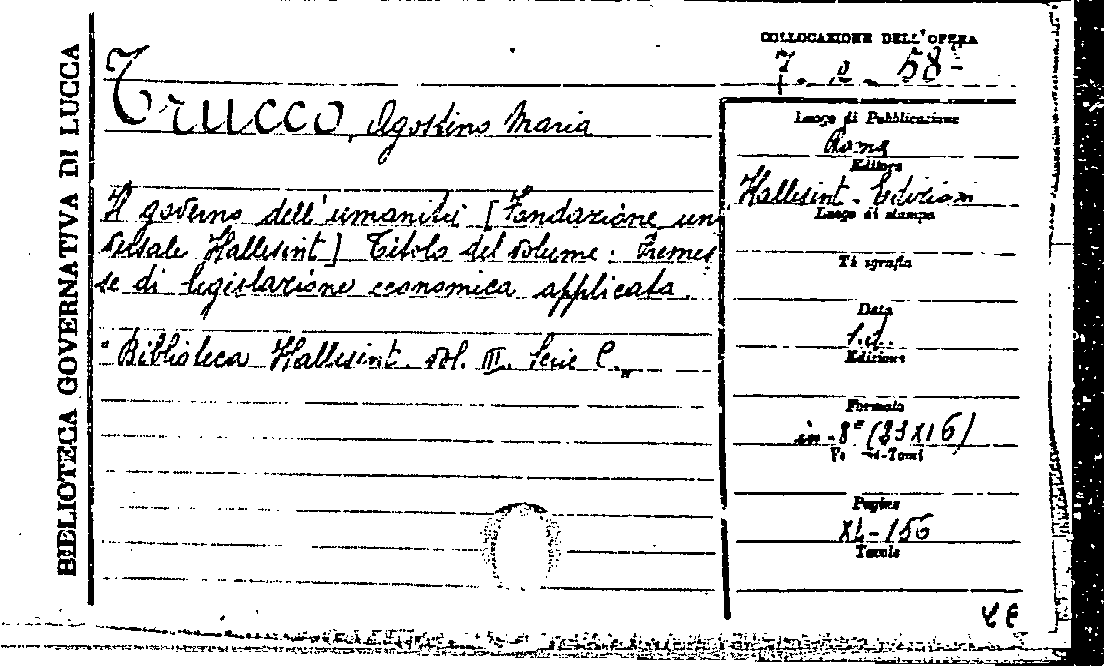 BIBLIOTECA GOVERNATIVA DI LUCCA
COLLOCAZIONE DELL'OPERA
7 - - 58-
Trucco, Agostino Maria
Il governo dell'umanità [Fondazione uni
versale Hallesint] Titolo del volume: Premes
se di legislazione economica applicata.
"Biblioteca Hallesint. vol. III. Serie C."
Luogo di Pubblicazione
Roma
Editore
Hallesint. Edizioni
Luogo di stampa
Tipografia
Data
s.d.
Edizione
Formato
in-8° (23X16)
Volumi-Tomi
Pagine
XL-156
Tavole